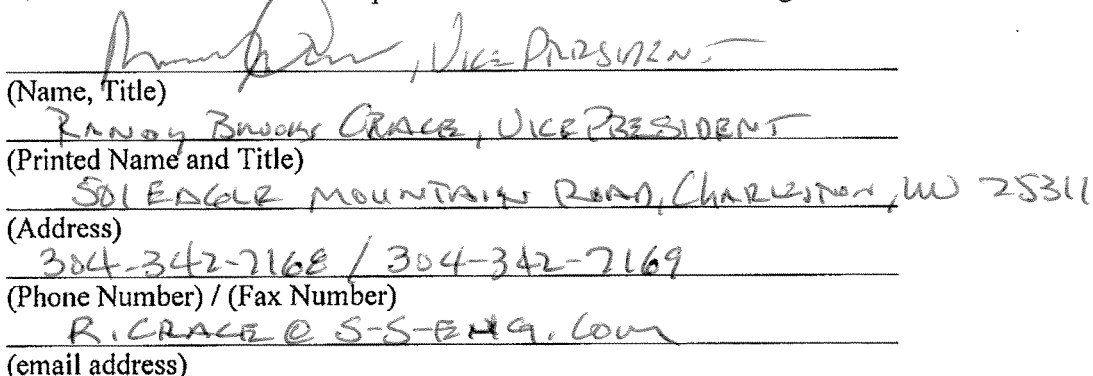 , Vice President
(Name, Title)
Randy Brooks Crace, Vice President
(Printed Name and Title)
501 Eagle Mountain Road, Charleston, WV 25311
(Address)
304-342-7168 / 304-342-7169
(Phone Number) / (Fax Number)
R.CRACE@S-S-ENG.com
(email address)